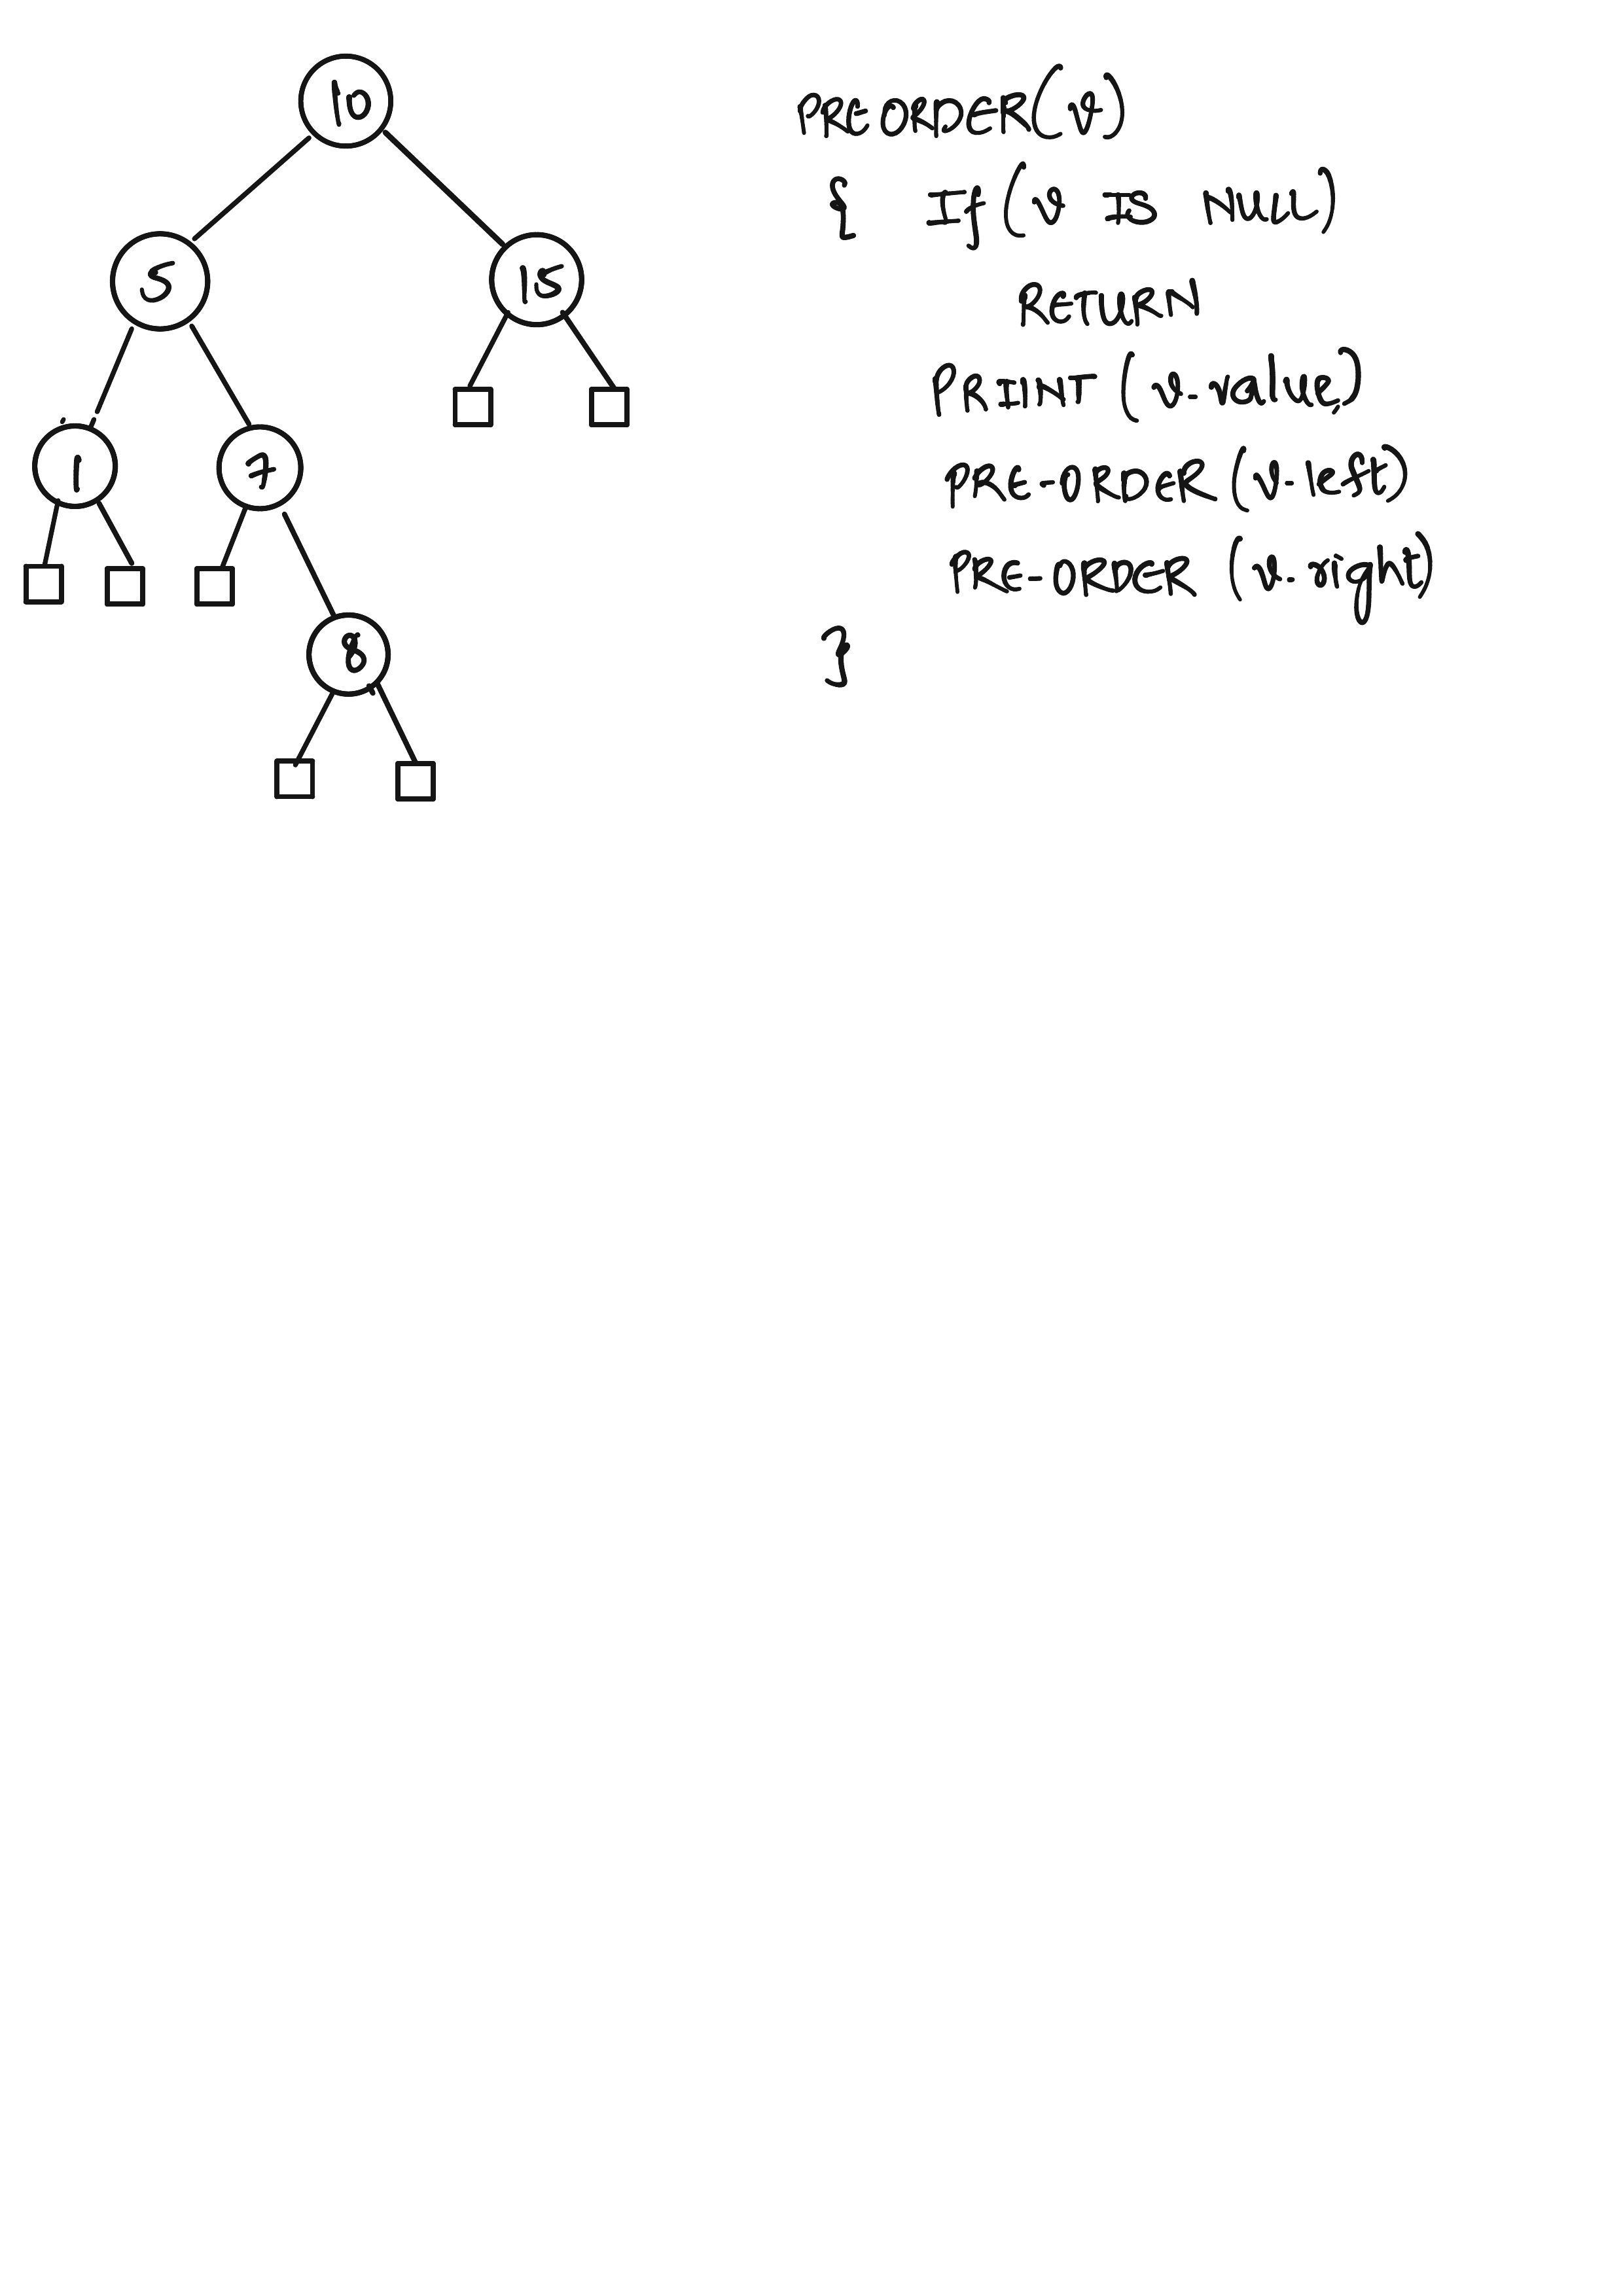 10
5
15
1
7
8
PREORDER(v)
{ If (v IS NULL)
RETURN
PRIINT (v.value)
PRE-ORDER (v.left)
PRE-ORDER (v.right)
}